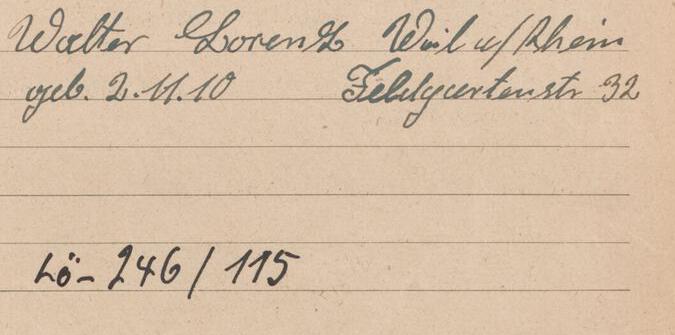 Walter Lorenz Weil a/Rhein
geb. 2.11.10 Feldgartenstr 32
Lö- 246/115